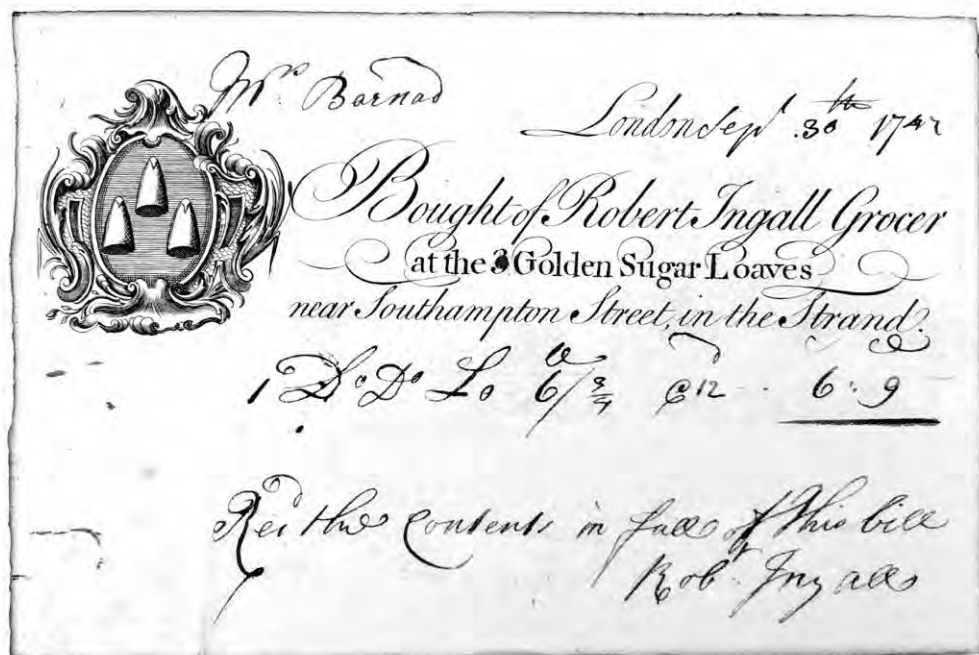 Mrs. Barnad
London Sepr. 30th 1747
Bought of Robert Ingall Grocer
at the 3 Golden Sugar Loaves
near Southampton Street, in the Strand.
1 Do Do Lo 6 3/4 @ 12 6:9
Recd the Contents in full of this bill
Robt. Ingall